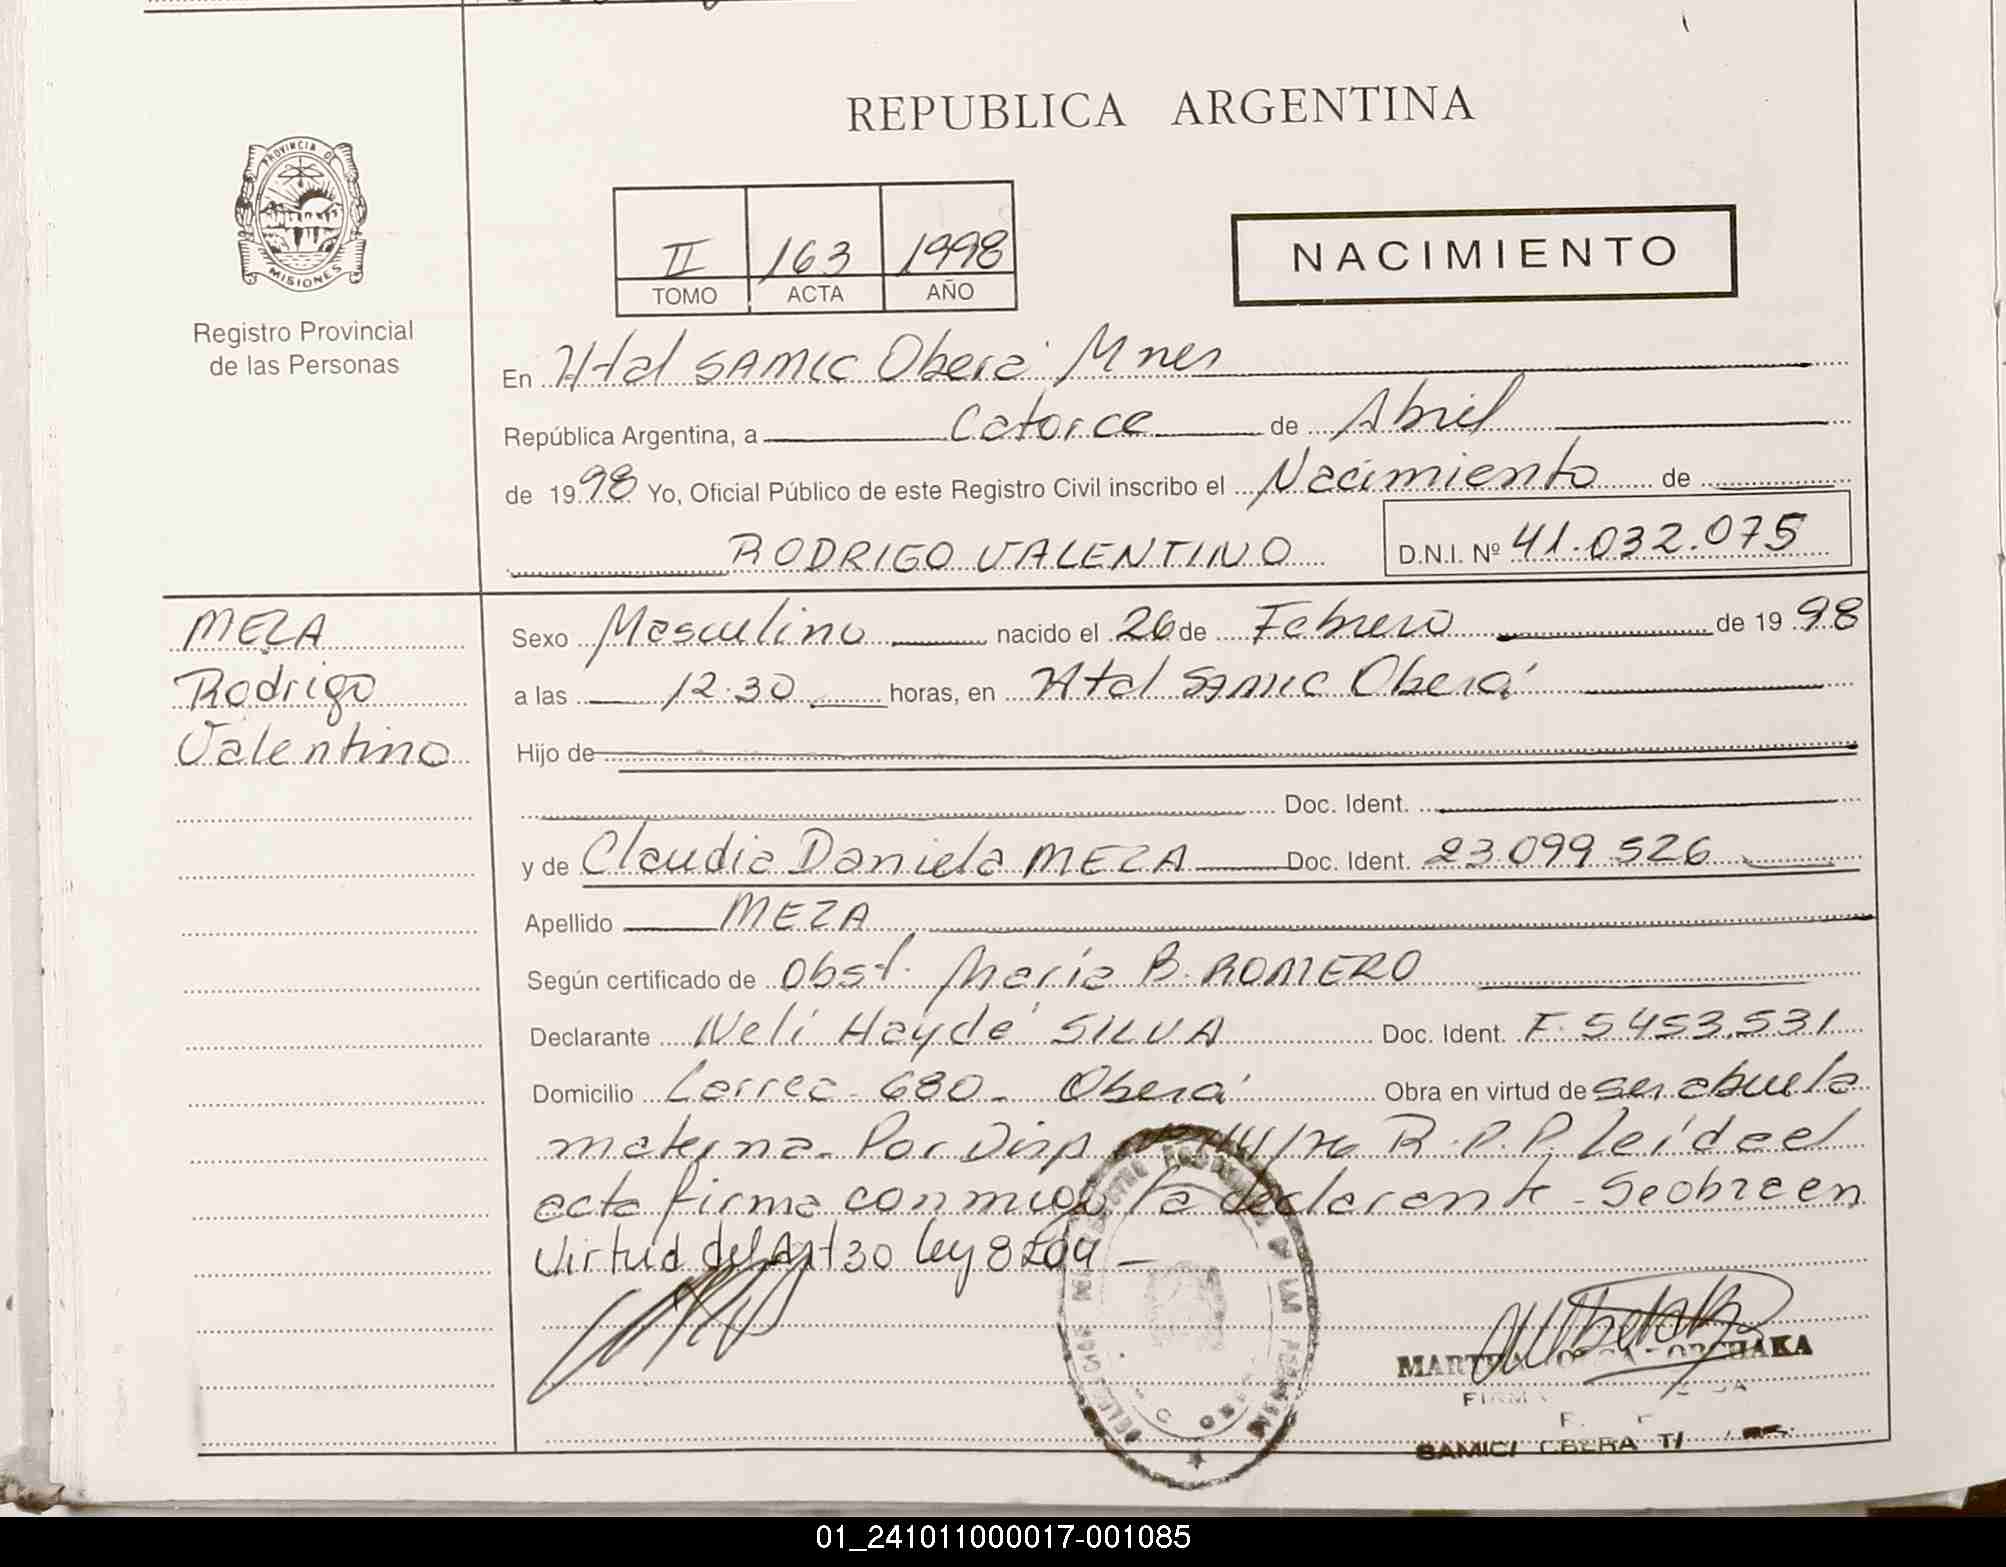 REPUBLICA ARGENTINA
PROVINCIA DE
MISIONES
Registro Provincial
de las Personas
II 163 1998
TOMO ACTA AÑO
NACIMIENTO
En Htal SAMIC Oberá Mnes
República Argentina, a Catorce de Abril
de 1998 Yo, Oficial Público de este Registro Civil inscribo el Nacimiento de
RODRIGO VALENTINO D.N.I. Nº 41.032.075
MEZA
Rodrigo
Valentino
Sexo Masculino nacido el 26 de Febrero de 1998
a las 12.30 horas, en Htal SAMIC Oberá
Hijo de
Doc. Ident.
y de Claudia Daniela MEZA Doc. Ident. 23.099.526
Apellido MEZA
Según certificado de Obst. María B. ROMERO
Declarante Neli Haydé SILVA Doc. Ident. F. 5453.531
Domicilio Larrea 680 - Oberá Obra en virtud de ser abuela
materna. Por Disp /76 R.P.P. Leída el
acta firma conmigo la declarante - Se obra en
Virtud del Art 30 ley 8204 -
MARTHA
SAMIC/ OBERA
01_241011000017-001085